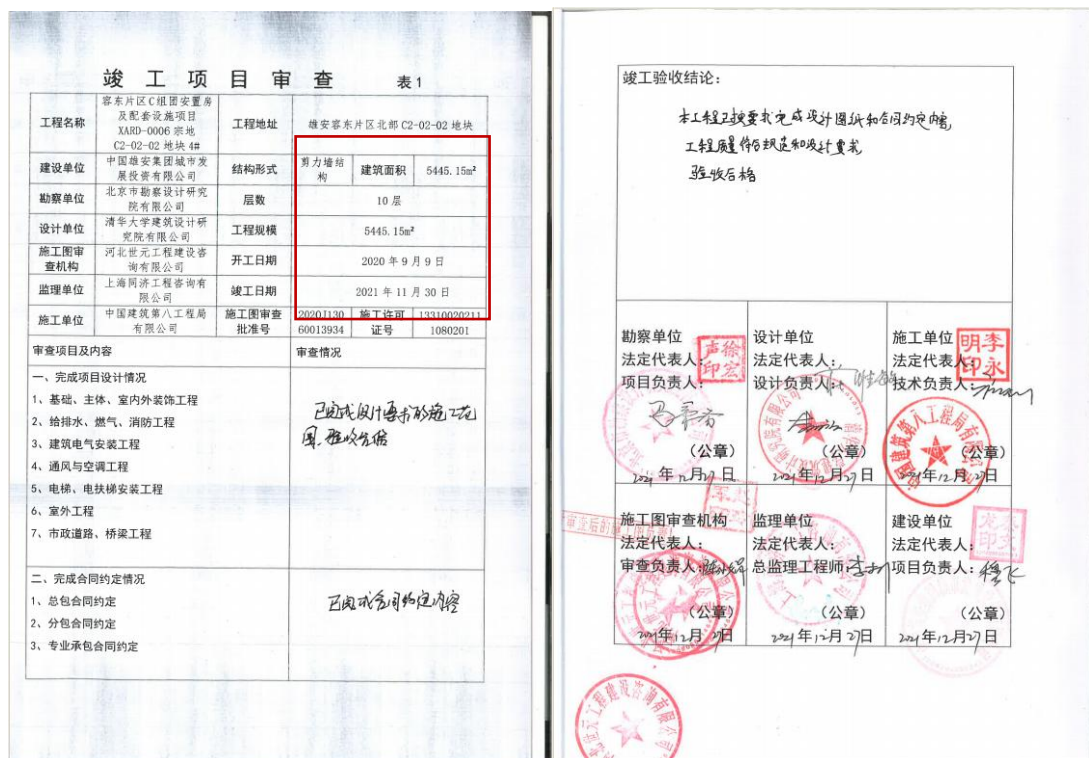 竣工项目审查 表1
工程名称 容东片区C组团安置房及配套设施项目XARD-0006宗地C2-02-02地块4# 工程地址 雄安容东片区北部C2-02-02地块
建设单位 中国雄安集团城市发展投资有限公司 结构形式 剪力墙结构 建筑面积 5445.15m²
勘察单位 北京市勘察设计研究院有限公司 层数 10层
设计单位 清华大学建筑设计研究院有限公司 工程规模 5445.15m²
施工图审查机构 河北世元工程建设咨询有限公司 开工日期 2020年9月9日
监理单位 上海同济工程咨询有限公司 竣工日期 2021年11月30日
施工单位 中国建筑第八工程局有限公司 施工图审查批准号 2020J13060013934 施工许可证号 133100202111080201
审查项目及内容 审查情况
一、完成项目设计情况
1、基础、主体、室内外装饰工程
2、给排水、燃气、消防工程
3、建筑电气安装工程
4、通风与空调工程
5、电梯、电扶梯安装工程
6、室外工程
7、市政道路、桥梁工程
已完成设计要求的施工范围,验收合格
二、完成合同约定情况
1、总包合同约定
2、分包合同约定
3、专业承包合同约定
已完成合同约定内容
竣工验收结论:
本工程已按要求完成设计图纸和合同约定内容,
工程质量符合规范和设计要求
验收合格
勘察单位
法定代表人:
项目负责人:
(公章)
2021年12月27日
设计单位
法定代表人:
设计负责人:
(公章)
2021年12月27日
施工单位
法定代表人:
技术负责人:
李永明印
中国建筑第八工程局有限公司
(公章)
2021年12月27日
施工图审查机构
法定代表人:
审查负责人:
(公章)
2021年12月27日
监理单位
法定代表人:
总监理工程师:
(公章)
2021年12月27日
建设单位
法定代表人:
项目负责人:
(公章)
2021年12月27日